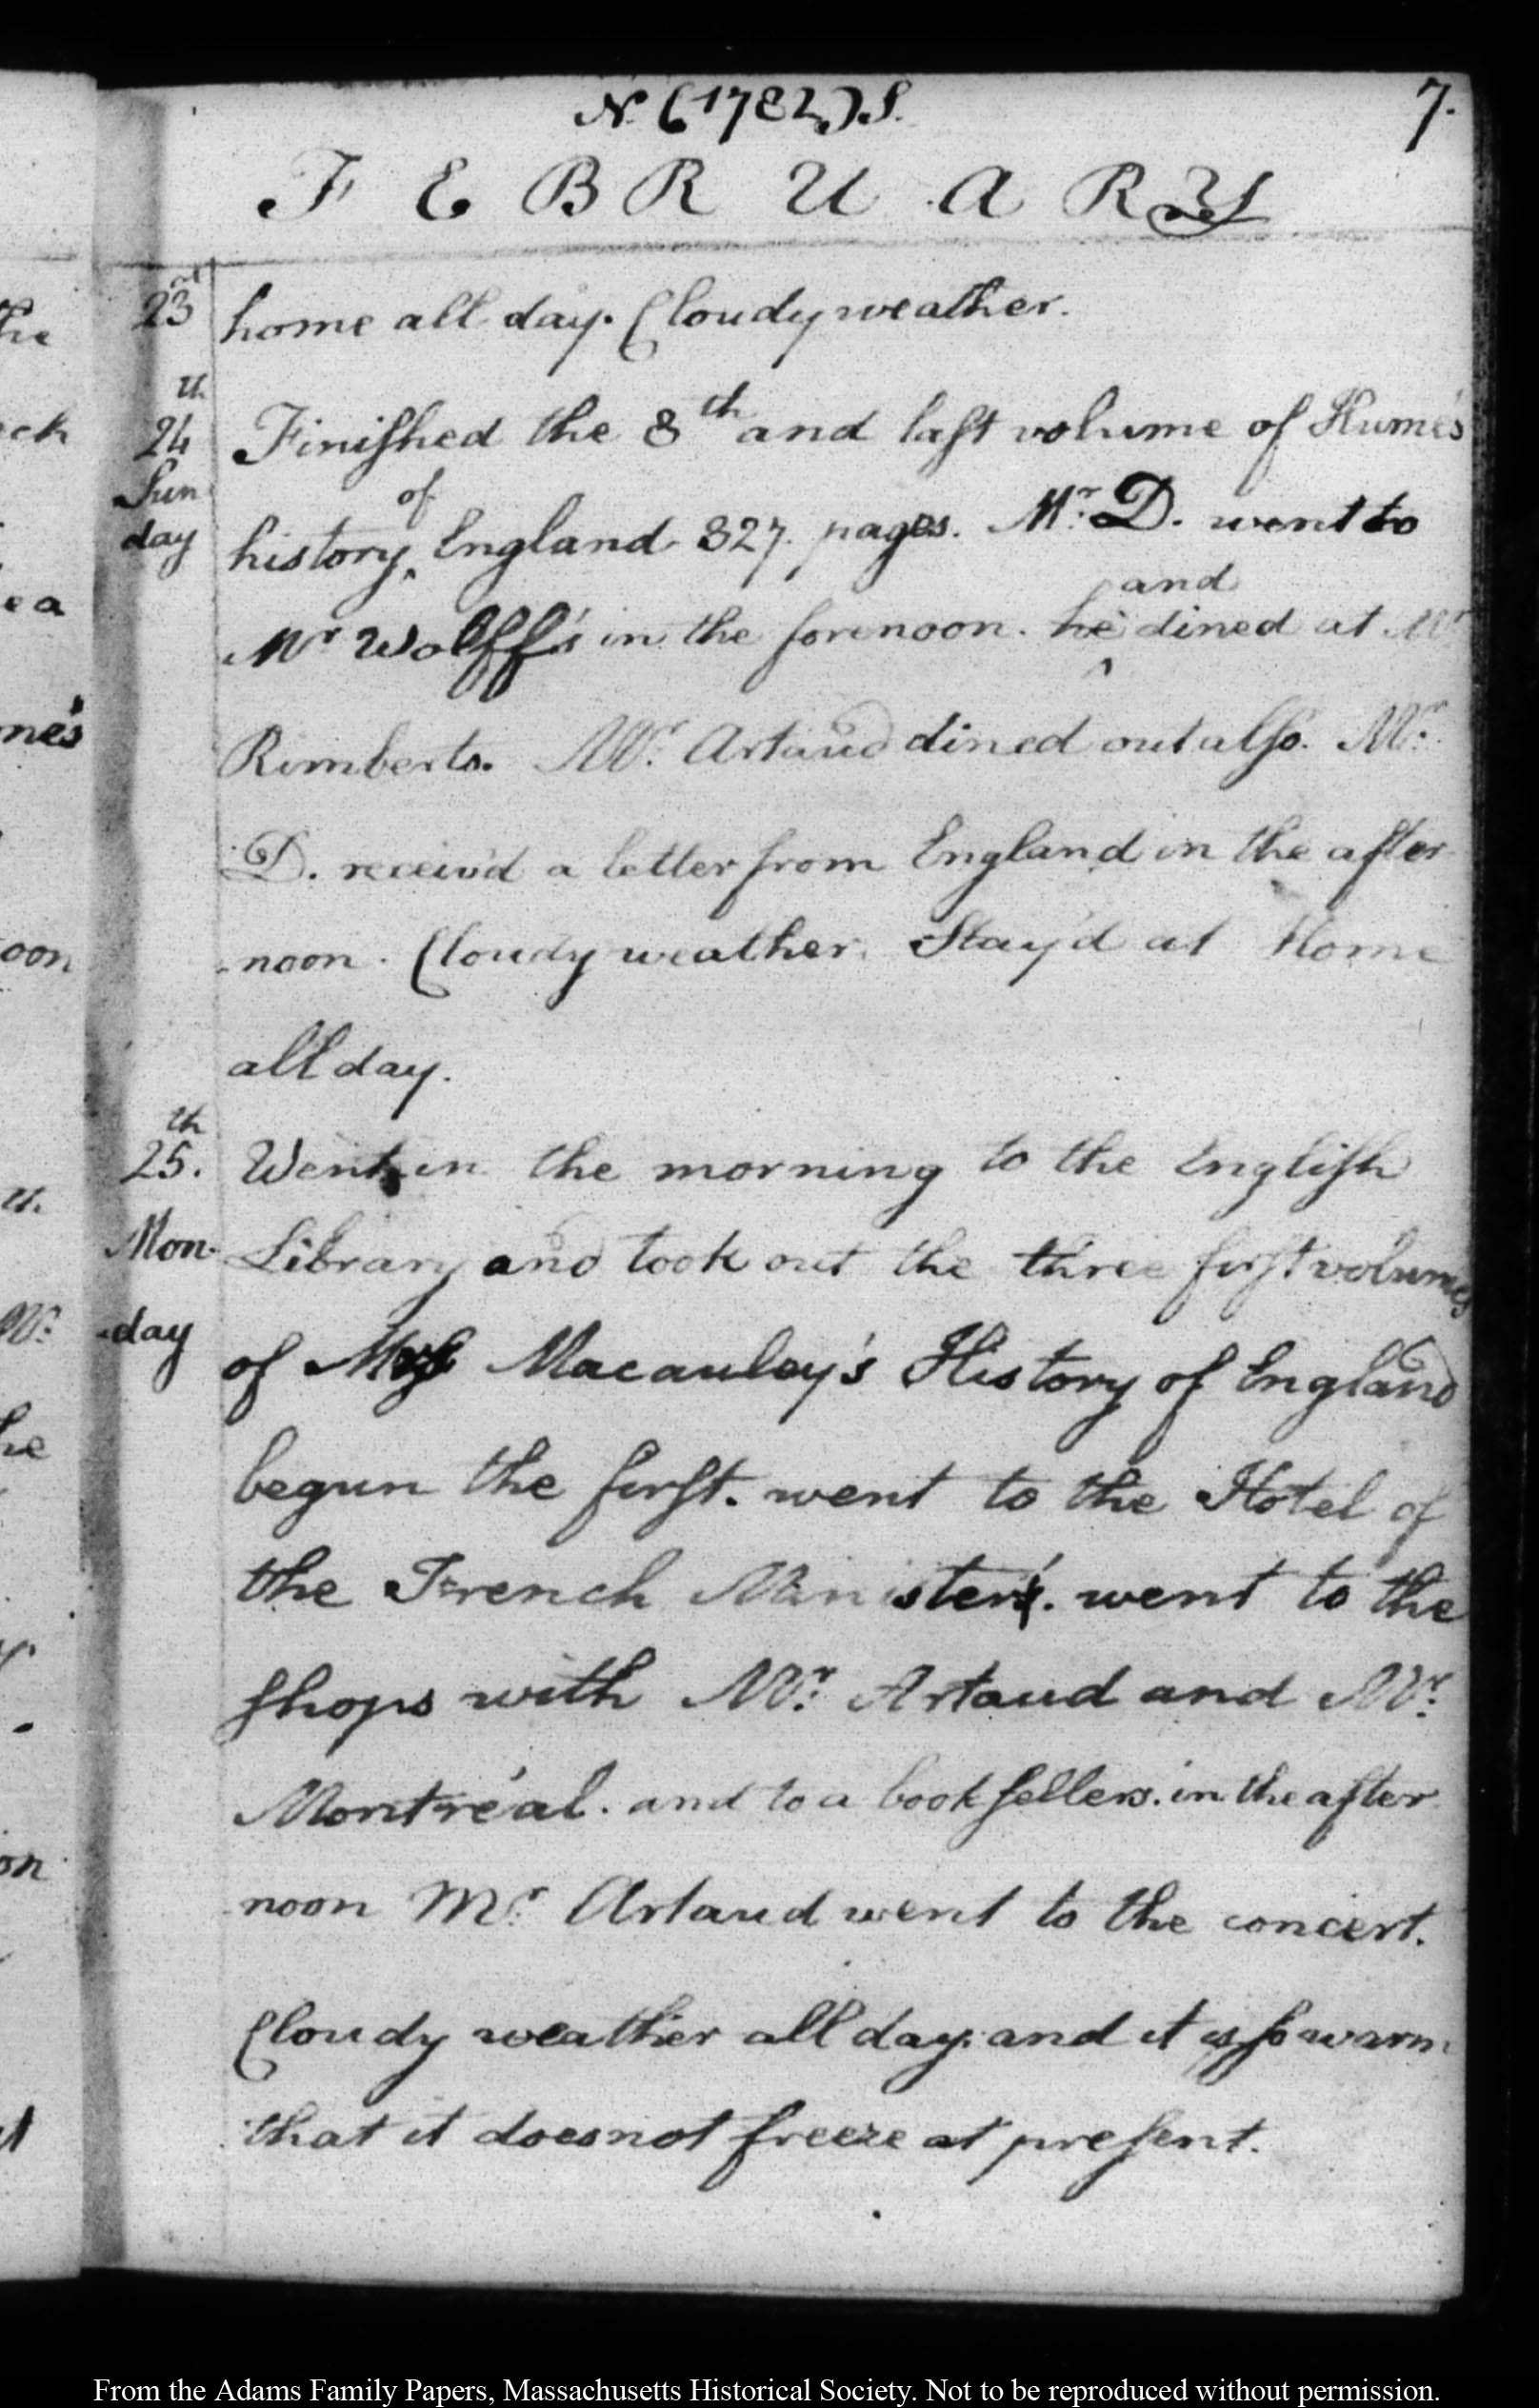 N. (1782.) S.
7.
FEBRUARY
23d home all day. Cloudy weather.
24th Finiſhed the 8th and laſt volume of Hume's
Sun
day history of England 327 pages. Mr. D. went to
Mr Wolff's in the forenoon. he and dined at Mr
Rimberts. Mr. Artaud dined out alſo. Mr.
D. receiv'd a letter from England in the after
-noon. Cloudy weather. Stay'd at Home
all day.
25th. Went in the morning to the Engliſh
Mon- Library and took out the three firſt volumes
-day of Mrs Macauley's History of England
begun the firſt. went to the Hotel of
the French Minister's. went to the
ſhops with Mr. Artaud and Mr.
Montréal. and to a bookſellers. in the after
noon Mr. Artaud went to the concert.
Cloudy weather all day. and it is ſo warm
that it does not freeze at preſent.
he
eck
ea
me's
oon
th
Mr.
he
on
From the Adams Family Papers, Massachusetts Historical Society. Not to be reproduced without permission.